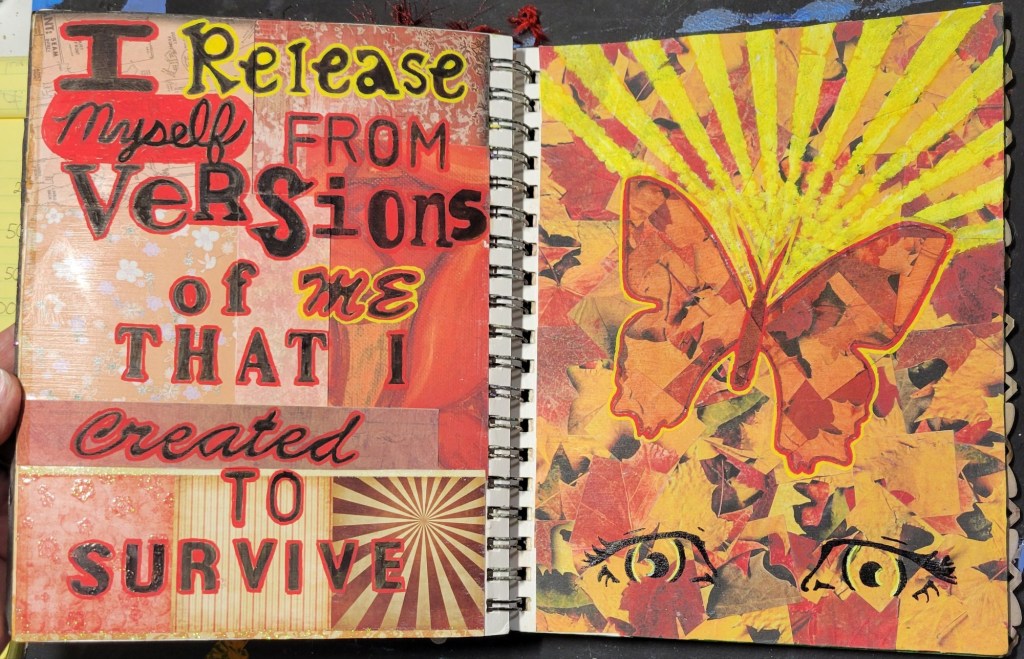 I Release
Myself FROM
VeRSions
of ME
THAT I
Created
TO
SURVIVE